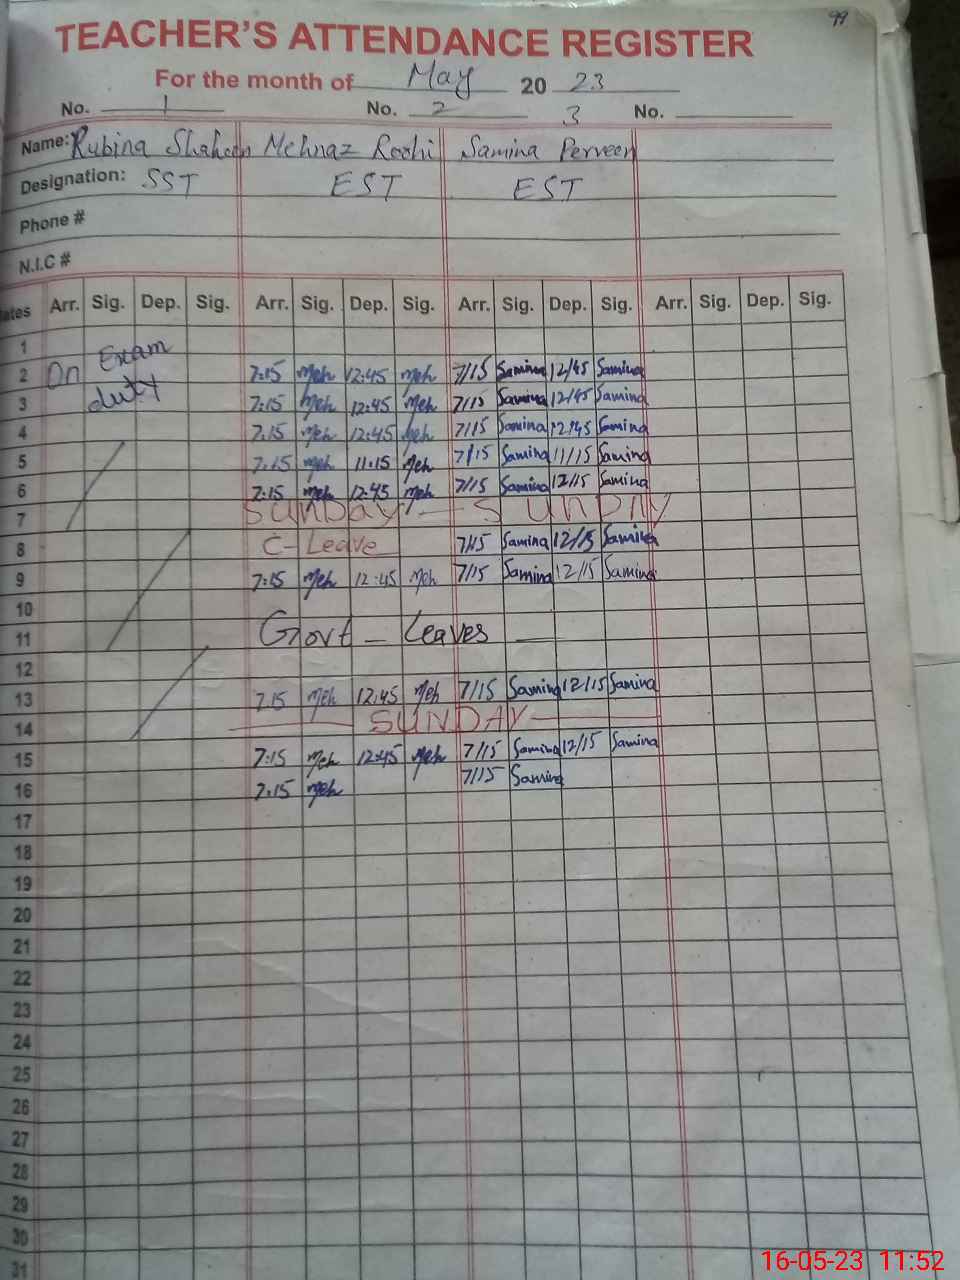 99
TEACHER'S ATTENDANCE REGISTER
For the month of May 20 23
No. 1 No. 2 3 No.
Name: Rubina Shaheen Mehnaz Roohi Samina Perveen
Designation: SST EST EST
Phone #
N.I.C #
ates Arr. Sig. Dep. Sig. Arr. Sig. Dep. Sig. Arr. Sig. Dep. Sig. Arr. Sig. Dep. Sig.
1
2 On Exam 7:15 Meh 12:45 Meh 7/15 Samina 12/45 Samina
3 duty 7:15 Meh 12:45 Meh 7/15 Samina 12/45 Samina
4 7:15 Meh 12:45 Meh 7/15 Samina 12/45 Samina
5 7:15 Meh 11:15 Meh 7/15 Samina 11/15 Samina
6 7:15 Meh 12:45 Meh 7/15 Samina 12/15 Samina
7 SUNDAY - SUNDAY
8 C-Leave 7/15 Samina 12/15 Samina
9 7:15 Meh 12:45 Meh 7/15 Samina 12/15 Samina
10
11 Govt - Leaves
12
13 7:15 Meh 12:45 Meh 7/15 Samina 12/15 Samina
14 SUNDAY
15 7:15 Meh 12:45 Meh 7/15 Samina 12/15 Samina
16 7:15 Meh 7/15 Samina
17
18
19
20
21
22
23
24
25
26
27
28
29
30
31
16-05-23 11:52